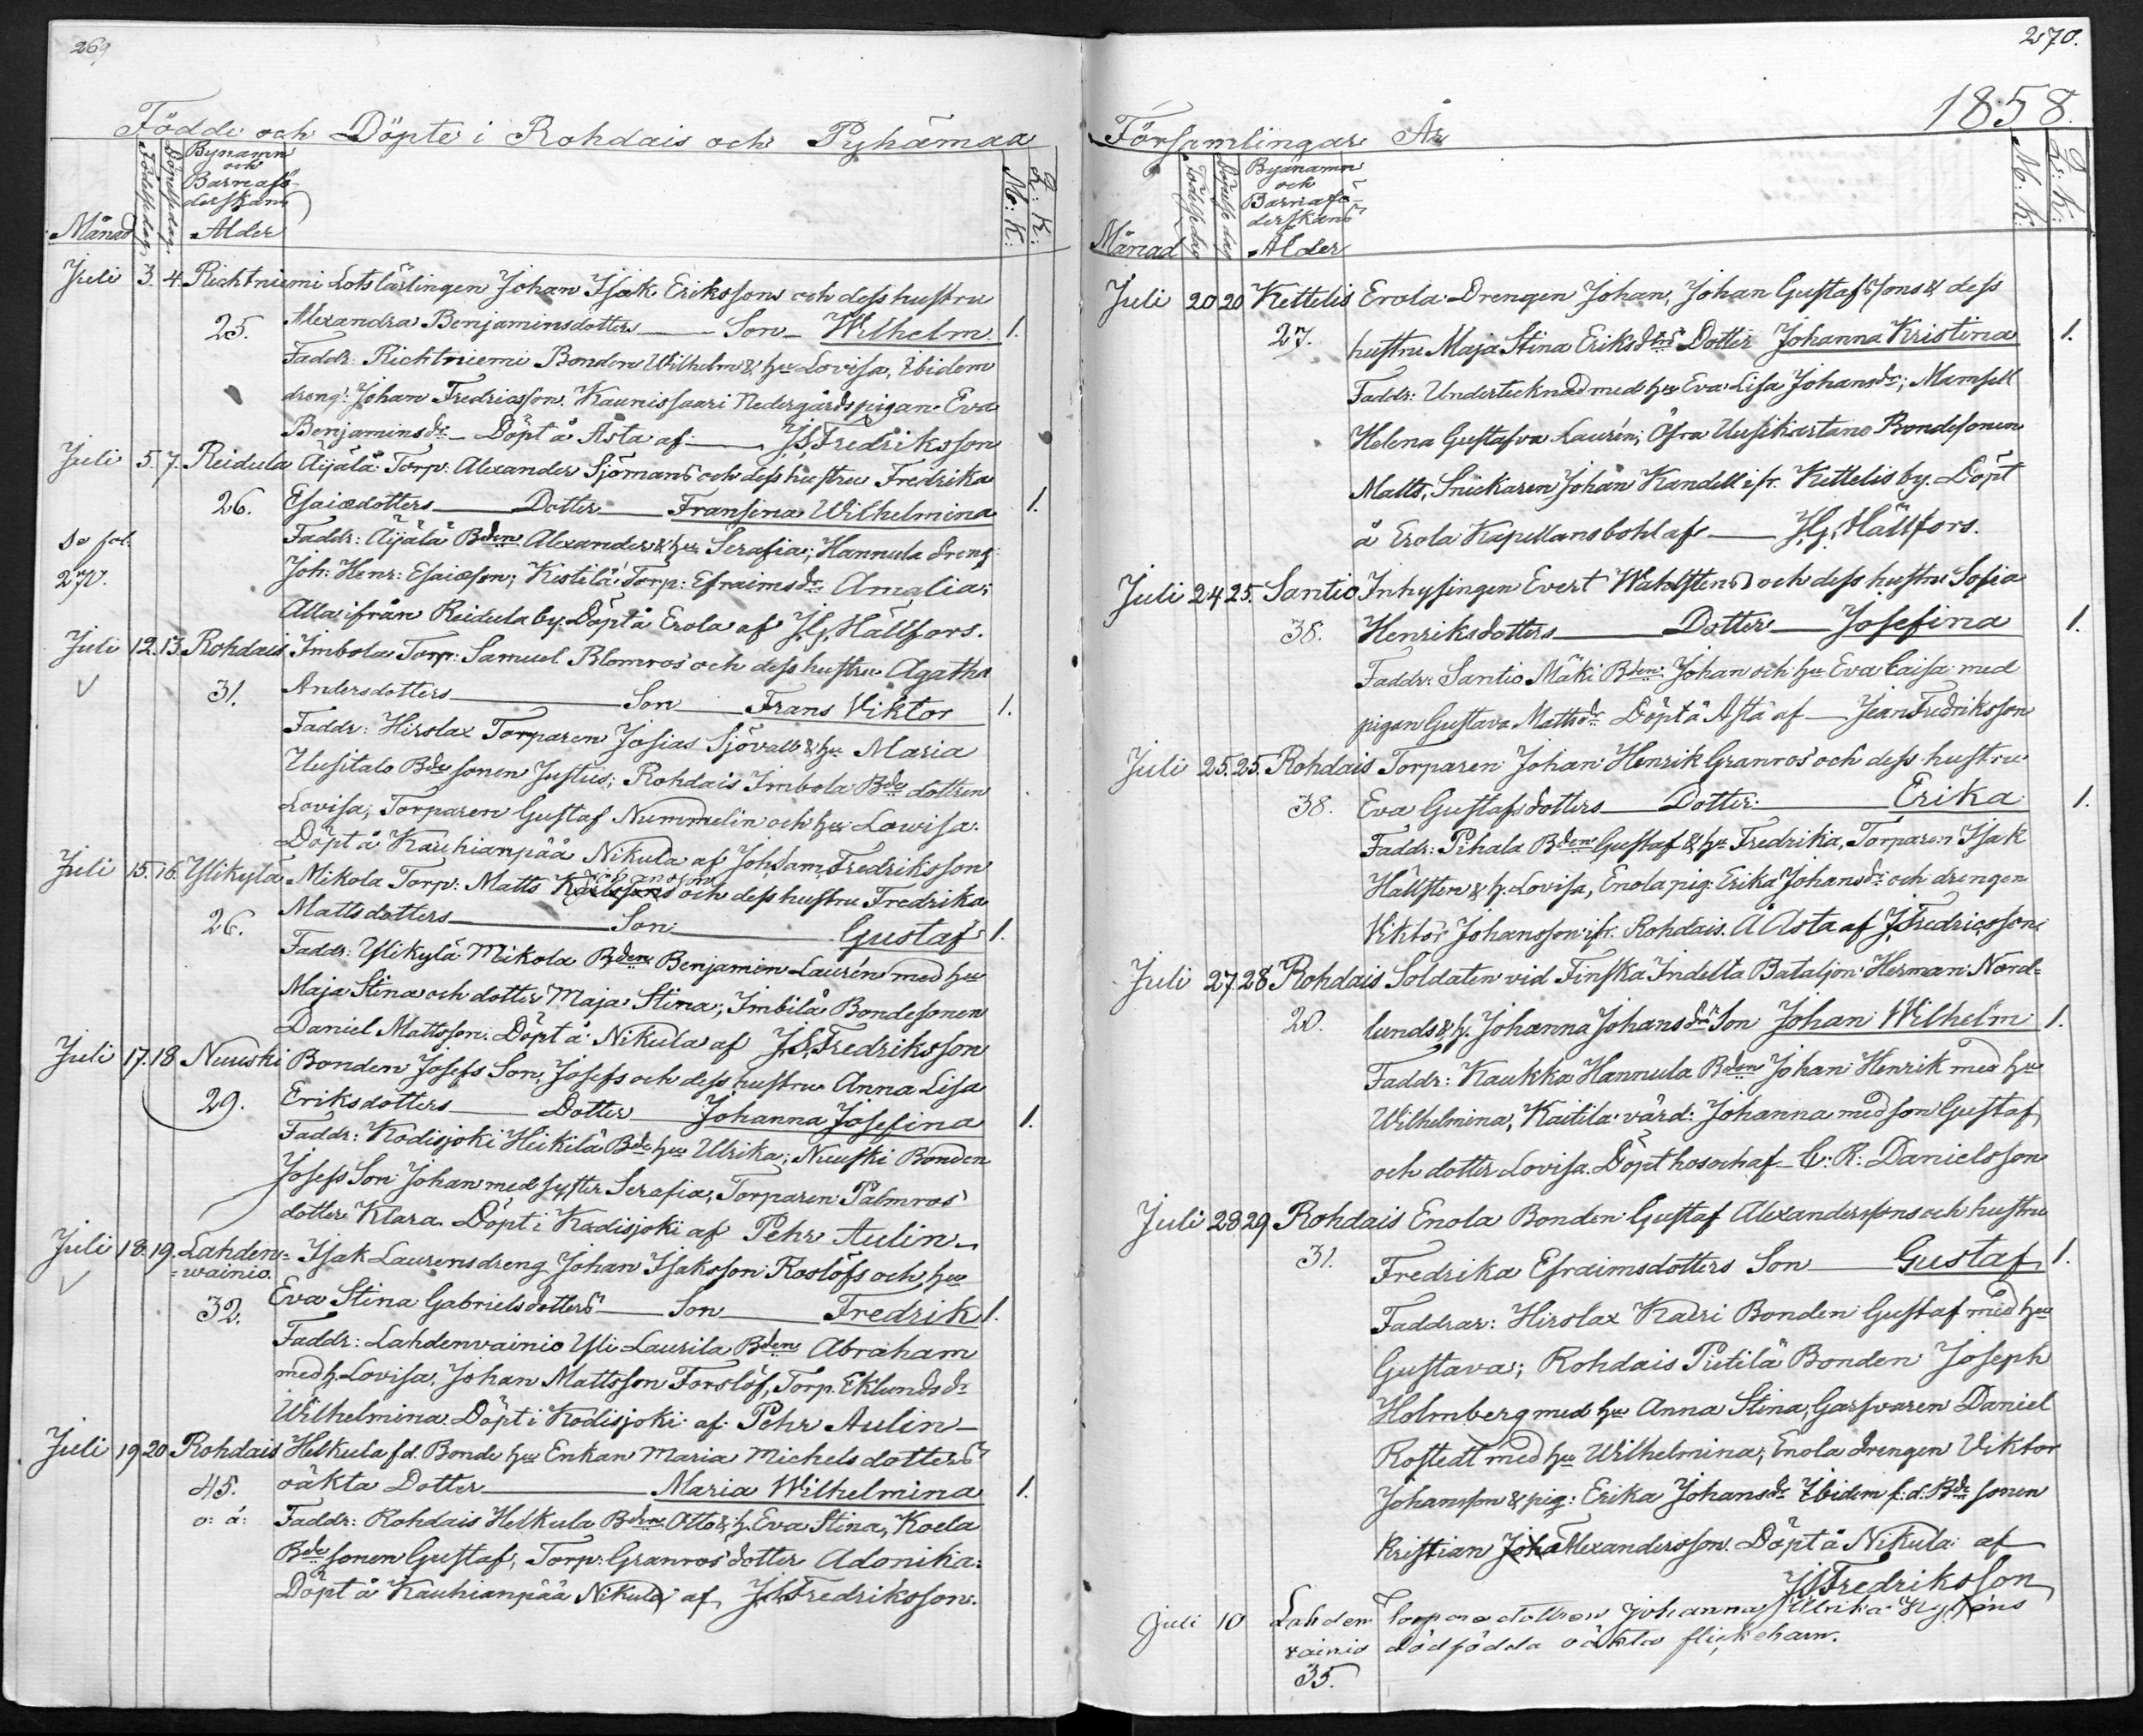 269
Födde och Döpte i Rohdais och Pyhämaa
Månad
Födelsedag
Döpelsedag
Bynamn
och
Barnafö-
derskans
Ålder
M: K:
Q: K:
Juli 3. 4. Richtniemi Lotslärlingen Johan Isak Erikssons och dess hustru
25. Alexandra Benjaminsdotters Son Wilhelm 1.
Faddr: Richtniemi Bonden Wilhelm & hu Lovisa, Ibidem
dreng: Johan Fredricsson. Kaunissaari Nedergårds pigan Eva
Benjamins dr Döpt å Asta af J.S. Fredriksson
Juli 5. 7. Reidula Äijälä Torp: Alexander Sjömans och dess hustru Fredrika
26. Esaiædotters Dotter Fransina Wilhelmina 1.
Se fol: Faddr: Äijälä Bden Alexander & hu Serafia; Hannula dreng
270. Joh: Henr: Esaiæson; Kestilä Torp: Efraims dr Amalia;
Alla ifrån Reidula by. Döpt å Erola af J.G. Hällfors.
Juli 12. 13. Rohdais Imbola Torp: Samuel Blomros' och dess hustru Agatha
31. Andersdotters Son Frans Viktor 1.
Faddr: Hirslax Torparen Josias Sjövall & hu Maria
Uusitalo Bde sonen Justus; Rohdais Imbola Bde dottren
Lovisa, Torparen Gustaf Nummelin och hu Lowisa.
Döpt å Kauhianpää Nikula af Joh. Sam. Fredriksson
Juli 15. 16. Ylikylä Mikola Torp: Matts Karlssons och dess hustru Fredrika
26. Mattsdotters Son Gustaf 1.
Faddr: Ylikylä Mikola Bden Benjamin Laurén med hu
Maja Stina och dotter Maja Stina; Imbilä Bondesonen
Daniel Mattsson. Döpt å Nikula af J.S. Fredriksson
Juli 17. 18 Nuuski Bonden Josefs Son, Josefs och dess hustru Anna Lisa
29. Eriksdotters Dotter Johanna Josefina 1.
Faddr: Kodisjoki Heikilä Bde hu Ulrika; Nuuski Bonden
Josefs Son Johan med syster Serafia, Torparen Palmros'
dotter Klara. Döpt i Kodisjoki af Pehr Aulin
Juli 18. 19. Lahden= Isak Laurens dreng Johan Isaksson Roslöfs och hu
=wainio.
32. Eva Stina Gabrielsdotters Son Fredrik 1.
Faddr: Lahdenvainio Yli Laurila Bden Abraham
med h. Lovisa, Johan Mattsson Forslöf, Torp. Eklunds dr
Wilhelmina. Döpt i Kodisjoki af Pehr Aulin
Juli 19 20 Rohdais Helkula f.d. Bonde hu Enkan Maria Michelsdotters
45. oäkta Dotter Maria Wilhelmina 1.
o: ä: Faddr: Rohdais Helkula Bden Otto & h. Eva Stina, Koela
Bde sonen Gustaf, Torp: Granros' dotter Adonika.
Döpt å Kauhianpää Nikula af J.S. Fredriksson.
270.
Församlingar År 1858.
Månad
Födelsedag
Döpelse dag
Byanamn
och
Barnafö-
derskans
Ålder
M: K:
Q: K:
Juli 20 20 Kettelis Erola Drengen Johan, Johan Gustafs Sons & dess
27. hustru Maja Stina Eriks drs Dotter Johanna Kristina 1.
Faddr: Undertecknad med hu Eva Lisa Johans dr; Mamsell
Helena Gustafva Laurén; Öfra Uusikartano Bondesonen
Matts, Snickaren Johan Kandell ifr. Kettelis by. Döpt
å Erola Kapellansbohl af J.G. Hällfors.
Juli 24 25. Santio Inhysingen Evert Wahlstens och dess hustru Sofia
38. Henriksdotters Dotter Josefina 1.
Faddr: Santio Mäki Bden Johan och hu Eva Caisa med
pigan Gustava Matts dr Döpt å Asta af Jean Fredriksson
Juli 25. 25. Rohdais Torparen Johan Henrik Granros' och dess hustru
38. Eva Gustafsdotters Dotter Erika 1.
Faddr: Pihala Bden Gustaf & hu Fredrika, Torparen Isak
Hällsten & h. Lovisa, Enola pig. Erika Johans dr och drengen
Viktor Johansson ifr. Rohdais. Å Asta af J. Fredricsson.
Juli 27. 28 Rohdais Soldaten vid Finska Indelta Bataljon Herman Nord=
20. lunds & h. Johanna Johans drs Son Johan Wilhelm 1.
Faddr: Kaukka Hannula Bden Johan Henrik med hu
Wilhelmina, Kaitila värd: Johanna med son Gustaf,
och dotter Lovisa. Döpt hos och af C: R: Danielsson
Juli 28 29 Rohdais Enola Bonden Gustaf Alexanderssons och hustru
31. Fredrika Efraimsdotters Son Gustaf 1.
Faddrar: Hirslax Kadri Bonden Gustaf med hu
Gustava; Rohdais Pietilä Bonden Joseph
Holmberg med hu Anna Stina, Garfvaren Daniel
Rostedt med hu Wilhelmina; Enola drengen Viktor
Johansson & pig: Erika Johans dr Ibidem f: d: Bde sonen
Kristian Joha Alexandersson. Döpt å Nikula af
J.S. Fredriksson
Juli 10 Lahden Torparedottren Johanna Ulrika Nyréns
vainio dödfödda oäkta flickebarn.
35.